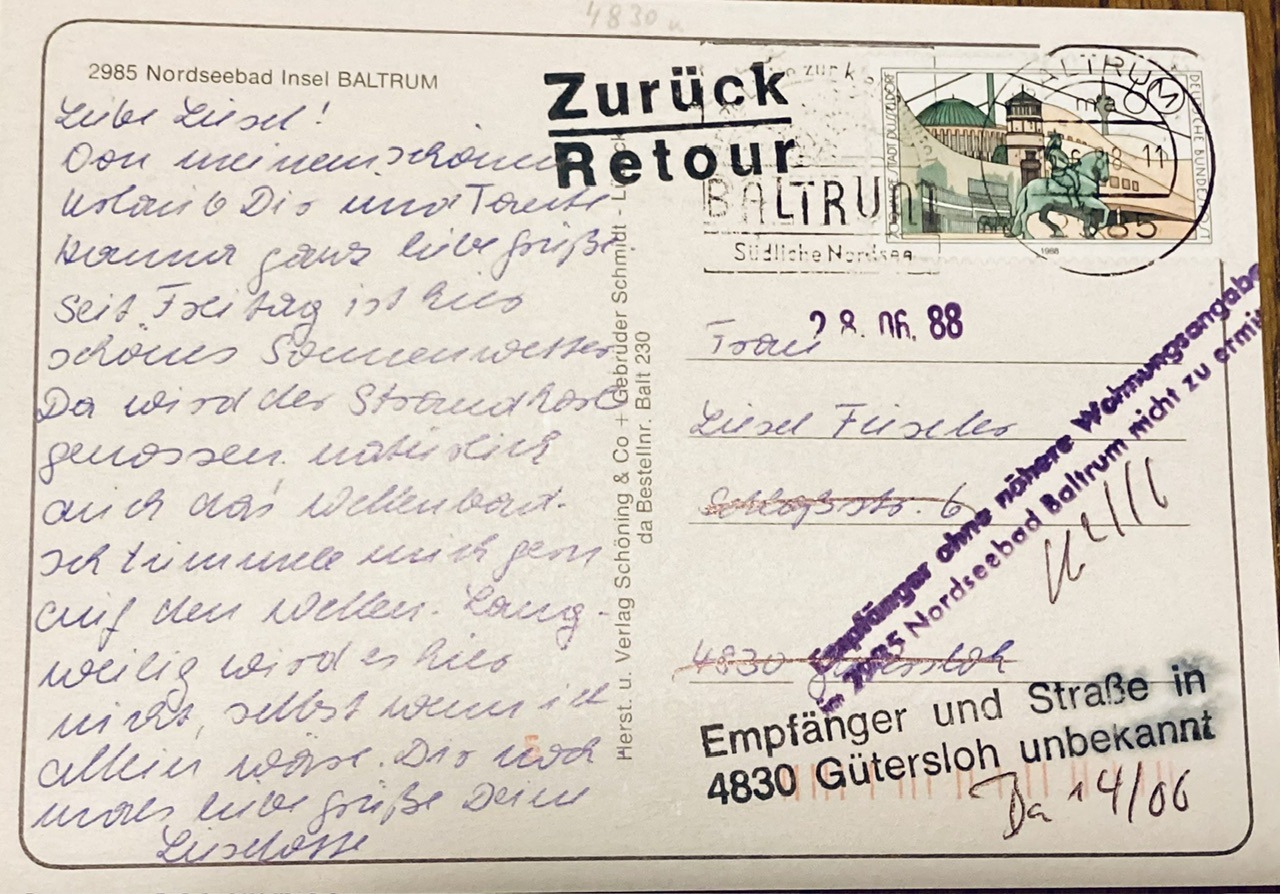 4830
2985 Nordseebad Insel BALTRUM
Liebe Liesel!
Von meinem schönen
Urlaub Dir und Tante
Hanna ganz liebe Grüße
Seit Freitag ist hier
schönes Sonnenwetter
Da wird der Strandkorb
genossen. natürlich
auch das Wellenbad.
Ich tummele mich gern
auf den Wellen. Lang-
weilig wird es hier
nicht, selbst wenn ich
allein wäre. Dir noch
mals liebe Grüße Deine
Lieselotte
Herst. u. Verlag Schöning & Co + Gebrüder Schmidt - Lübeck
Bestellnr. Balt 230
Zurück
Retour
BALTRUM
Südliche Nordsee
BALTRUM
11
2985
750 JAHRE STADT DÜSSELDORF
DEUTSCHE BUNDESPOST
1988
28. 06. 88
Frau
Liesel
Schloßstr. 6
4830 Gütersloh
Empfänger ohne nähere Wohnungsangabe
in 2985 Nordseebad Baltrum nicht zu ermit
Empfänger und Straße in
4830 Gütersloh unbekannt
Da 14/06